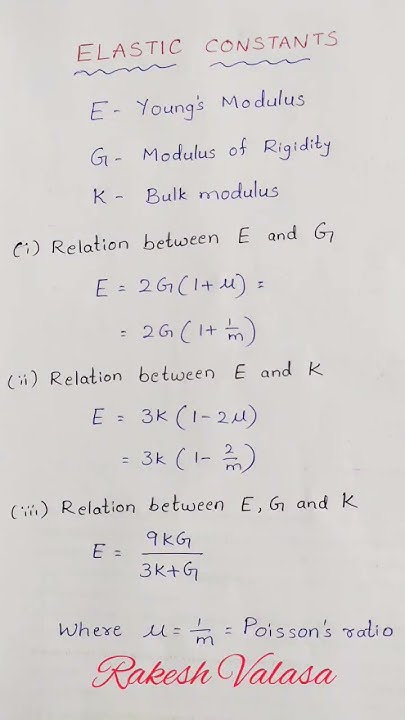 ELASTIC CONSTANTS
E - Young's Modulus
G - Modulus of Rigidity
K - Bulk modulus
(i) Relation between E and G
E = 2G(1+μ) =
= 2G(1+1/m)
(ii) Relation between E and K
E = 3K(1-2μ)
= 3K(1-2/m)
(iii) Relation between E, G and K
E = 9KG/3K+G
Where μ = 1/m = Poisson's ratio
Rakesh Valasa